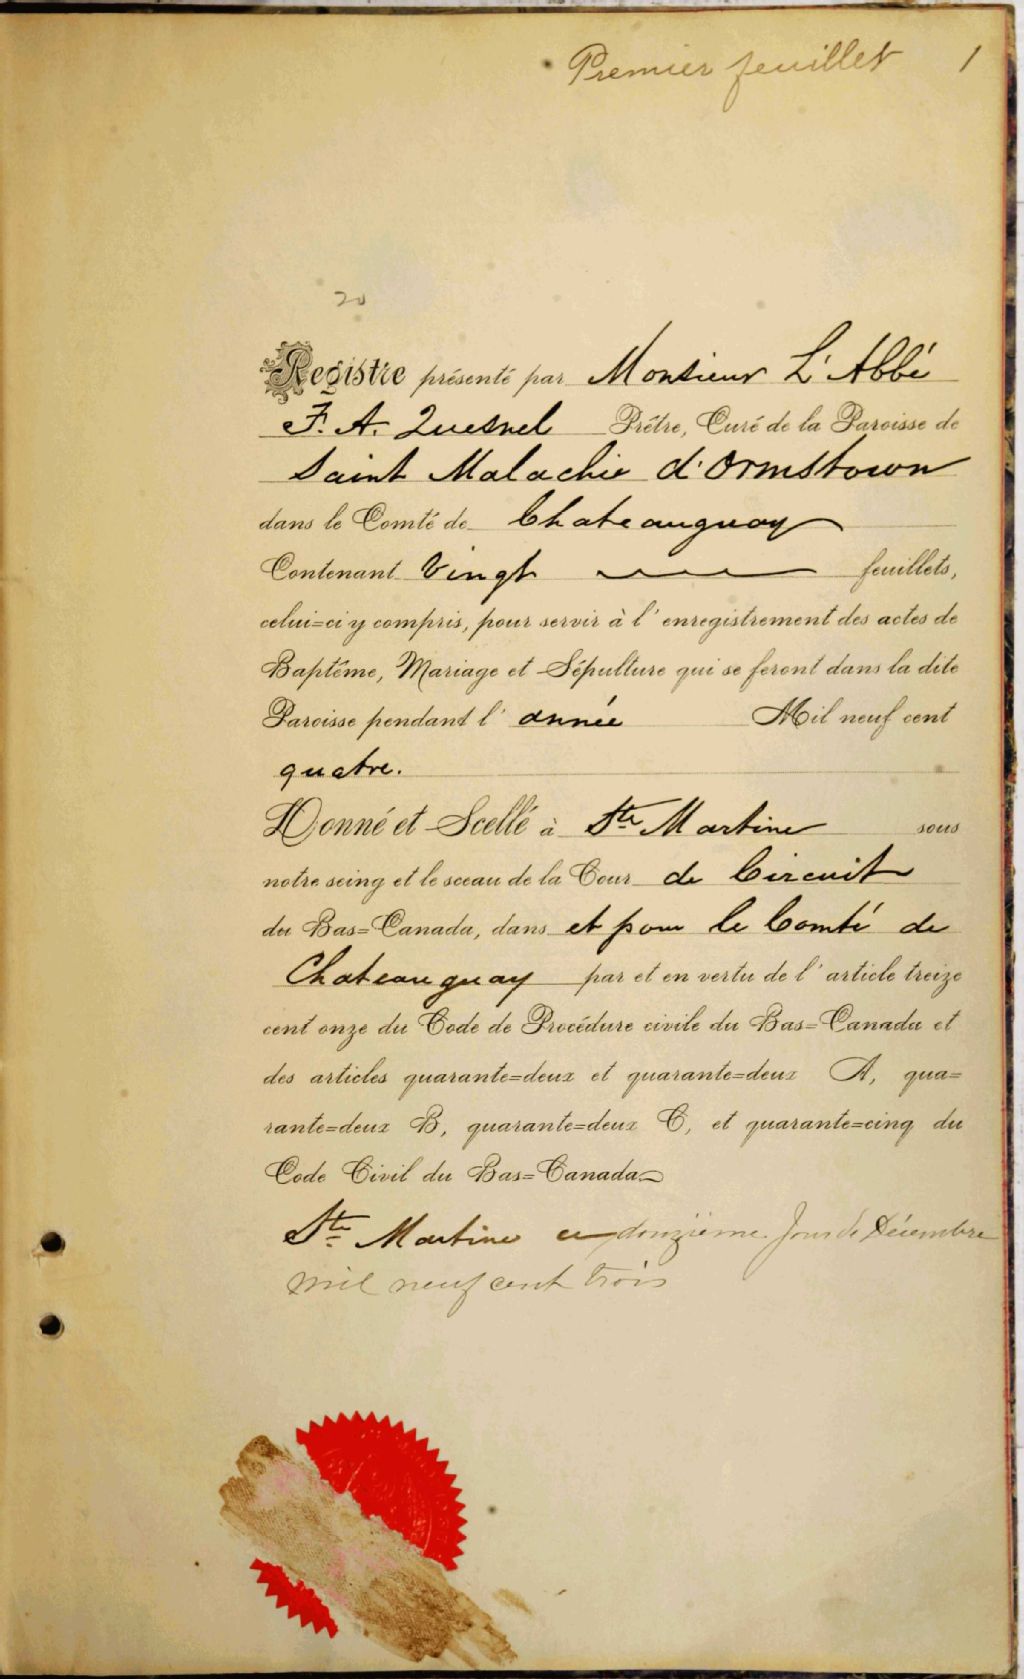 Premier feuillet 1
20
Registre présenté par Monsieur L'Abbé
F. A. Quesnel Prêtre, Curé de la Paroisse de
Saint Malachie d'Ormstown
dans le Comté de Chateauguay
Contenant Vingt feuillets,
celui=ci y compris, pour servir à l'enregistrement des actes de
Baptême, Mariage et Sépulture qui se feront dans la dite
Paroisse pendant l'année Mil neuf cent
quatre.
Donné et Scellé à Ste Martine sous
notre seing et le sceau de la Cour de Circuit
du Bas=Canada, dans et pour le Comté de
Chateauguay par et en vertu de l'article treize
cent onze du Code de Procédure civile du Bas=Canada et
des articles quarante=deux et quarante=deux A, qua=
rante=deux B, quarante=deux C, et quarante=cinq du
Code Civil du Bas=Canada
Ste Martine ce douzième Jour de Décembre
mil neuf cent trois